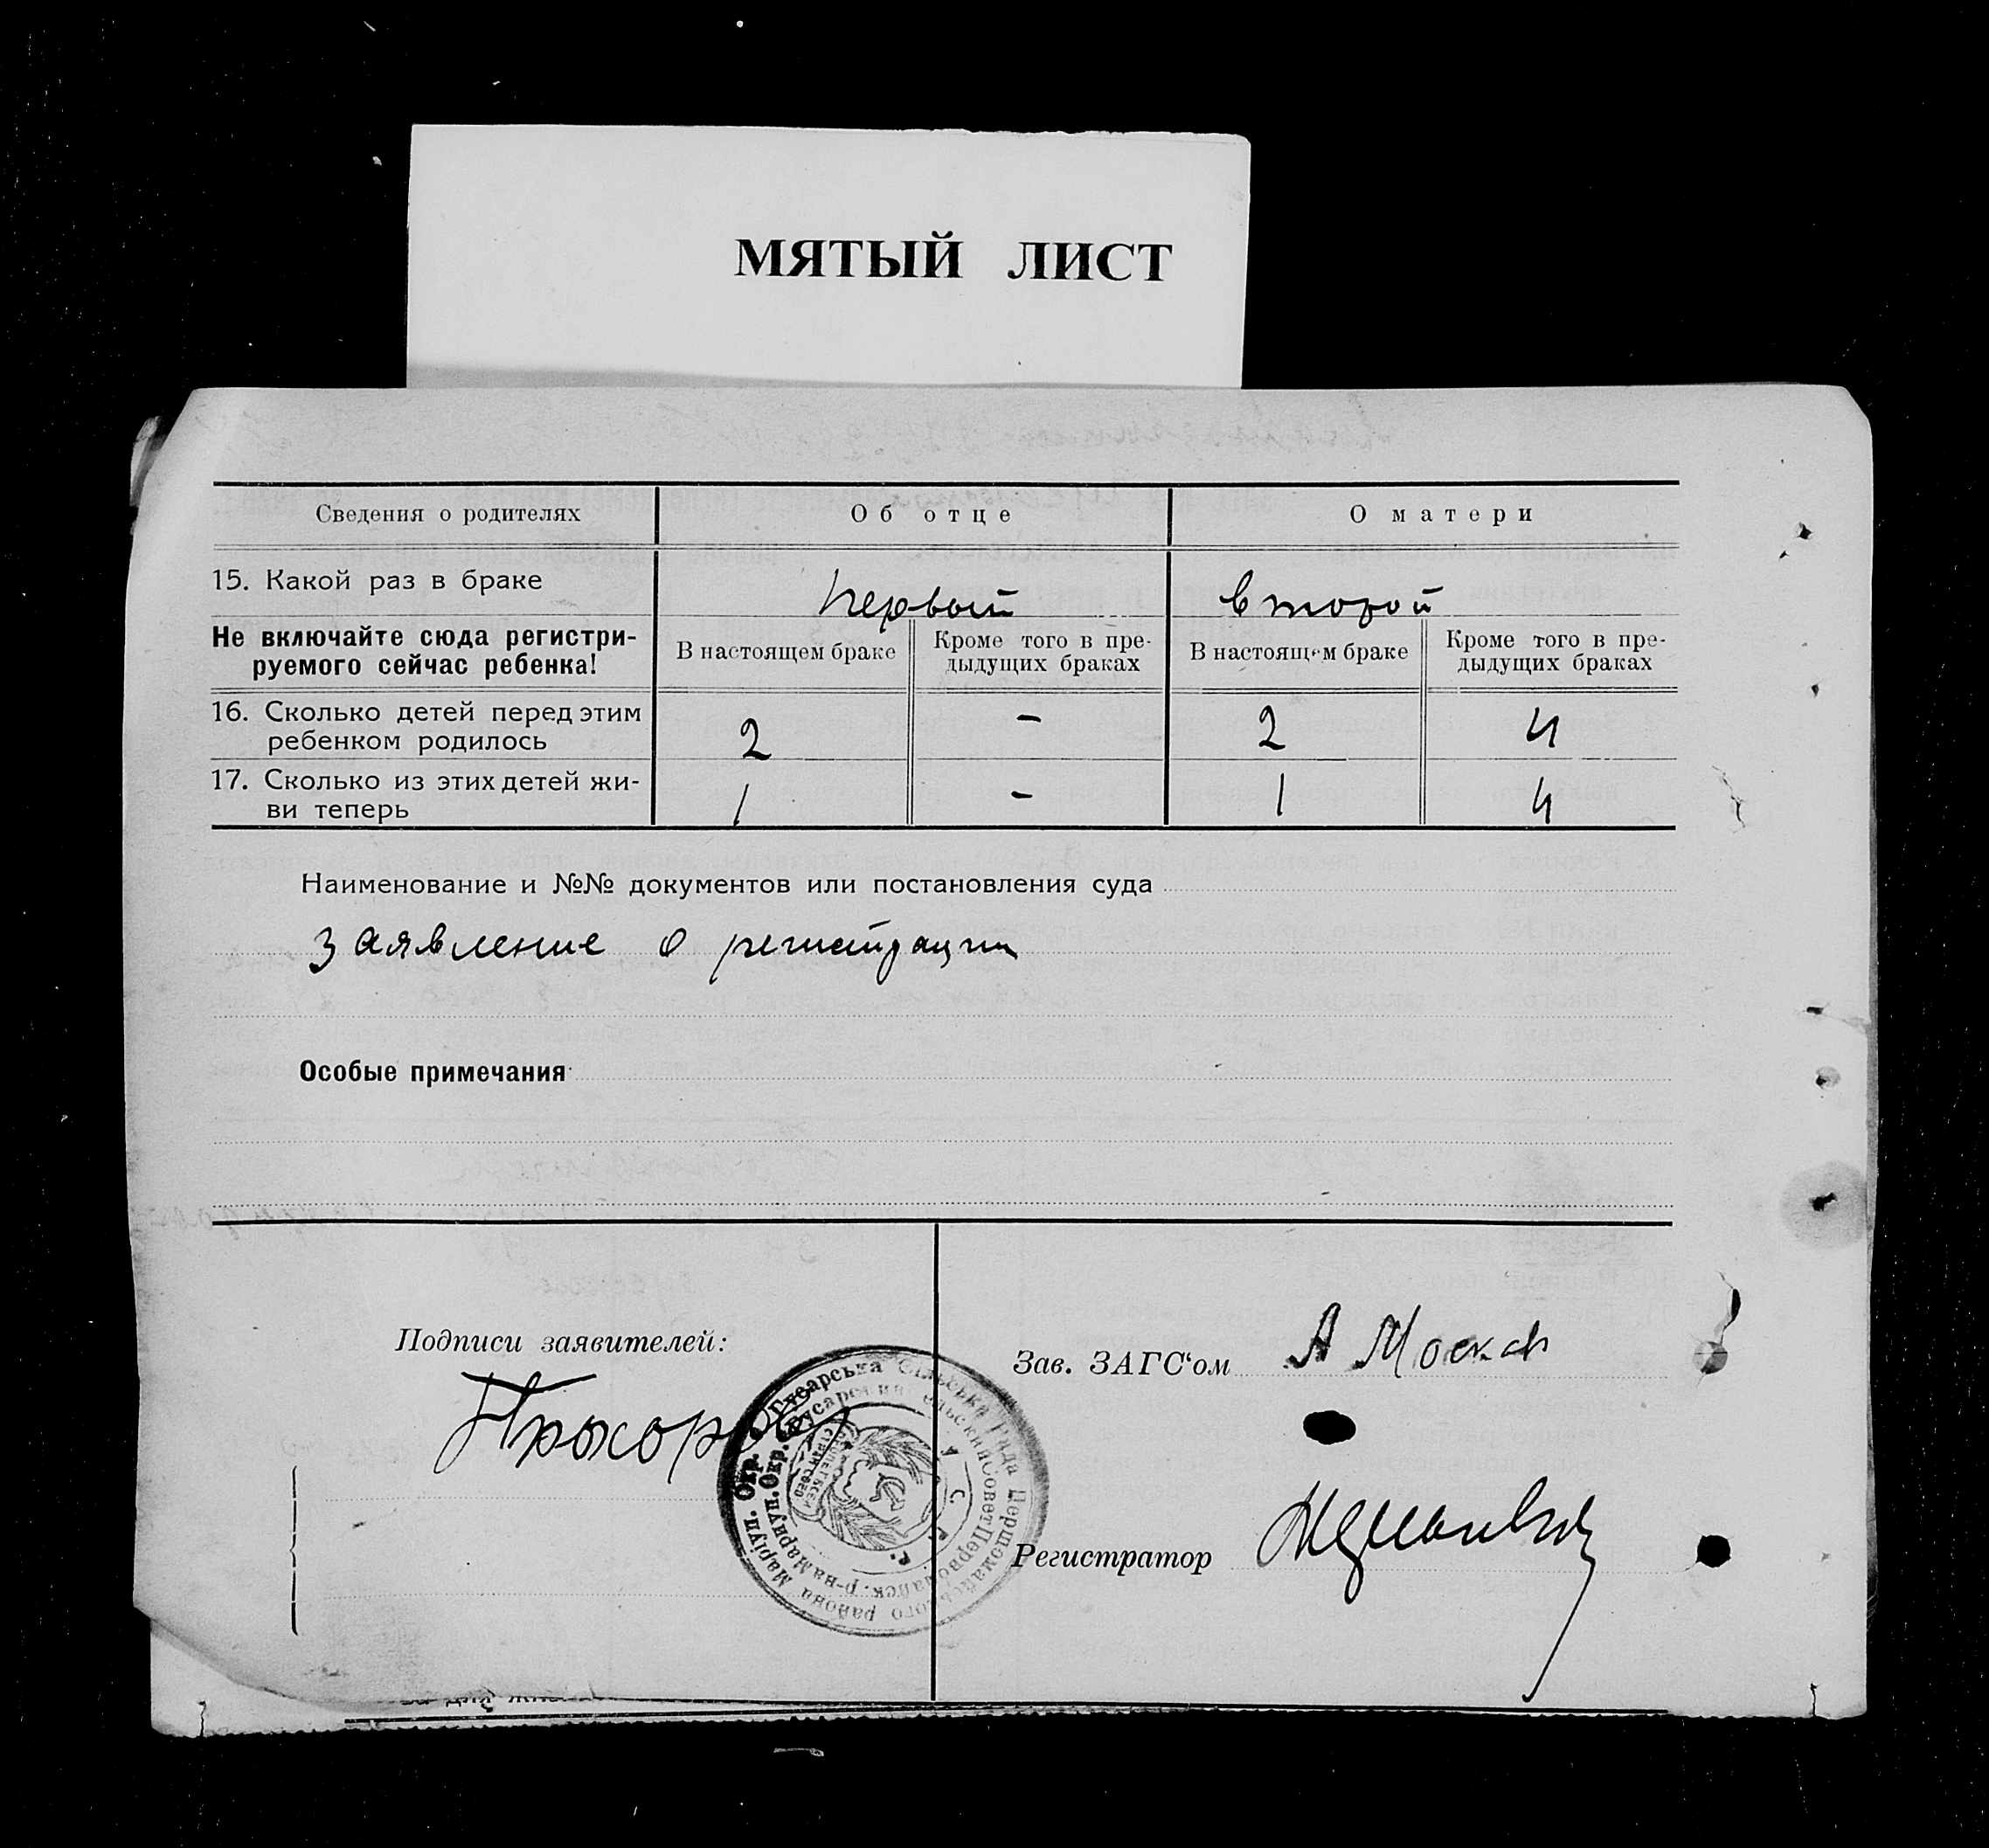 МЯТЫЙ ЛИСТ
Сведения о родителях
Об отце
О матери
15. Какой раз в браке
первый
второй
Не включайте сюда регистри-
руемого сейчас ребенка!
В настоящем браке
Кроме того в пре-
дыдущих браках
В настоящем браке
Кроме того в пре-
дыдущих браках
16. Сколько детей перед этим
ребенком родилось
2
–
2
4
17. Сколько из этих детей жи-
ви теперь
1
–
1
4
Наименование и №№ документов или постановления суда
заявление о регистрации
Особые примечания
Подписи заявителей:
Зав. ЗАГС‘ом А Моск
Регистратор
Маріуп. Окр. Гусарська Сільська Рада Першомайського района
Мариуп. Окр. Гусарский Сельский Совет Первомайск. р-на
У. С. Р. Р.